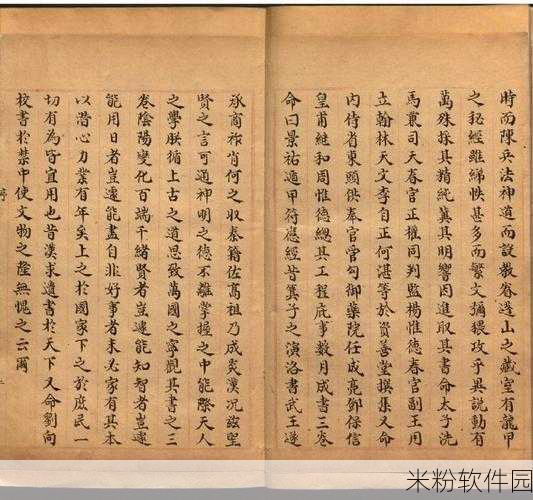 時而陳兵法神道而設教眷蓬山之藏室有龍甲
之秘經雖綈帙甚多而繁文猶猥攻乎異説動有
萬殊採其精純冀其明響因進取其書命太子洗
馬兼司天春官正權同判監楊惟德春官副王用
立翰林天文李自正何湛等於資善堂撰集又命
内侍省東頭供奉官管勾御藥院任成亮鄧保信
皇甫繼和周惟德總其工程庶事數月成書三卷
命曰景祐遁甲符應經昔箕子之演洛書武王遂
承商祚肖何之收秦籍佐高祖乃成炎漢况兹聖
賢之言可通神明之德不離掌握之中能際天人
之學朕循上古之道思致萬國之寧觀其書之三
卷陰陽變化百端千緒賢者豈遽能知智者豈遽
能用日者豈遽能盡自非好事者未必家有其本
以潜心力業有年矣上之於國家下之於庶民一
切有為皆宜用也昔漢求遺書於天下又命劉向
校書於禁中使文物之盛無愧之云爾
序
二
米粉软件园